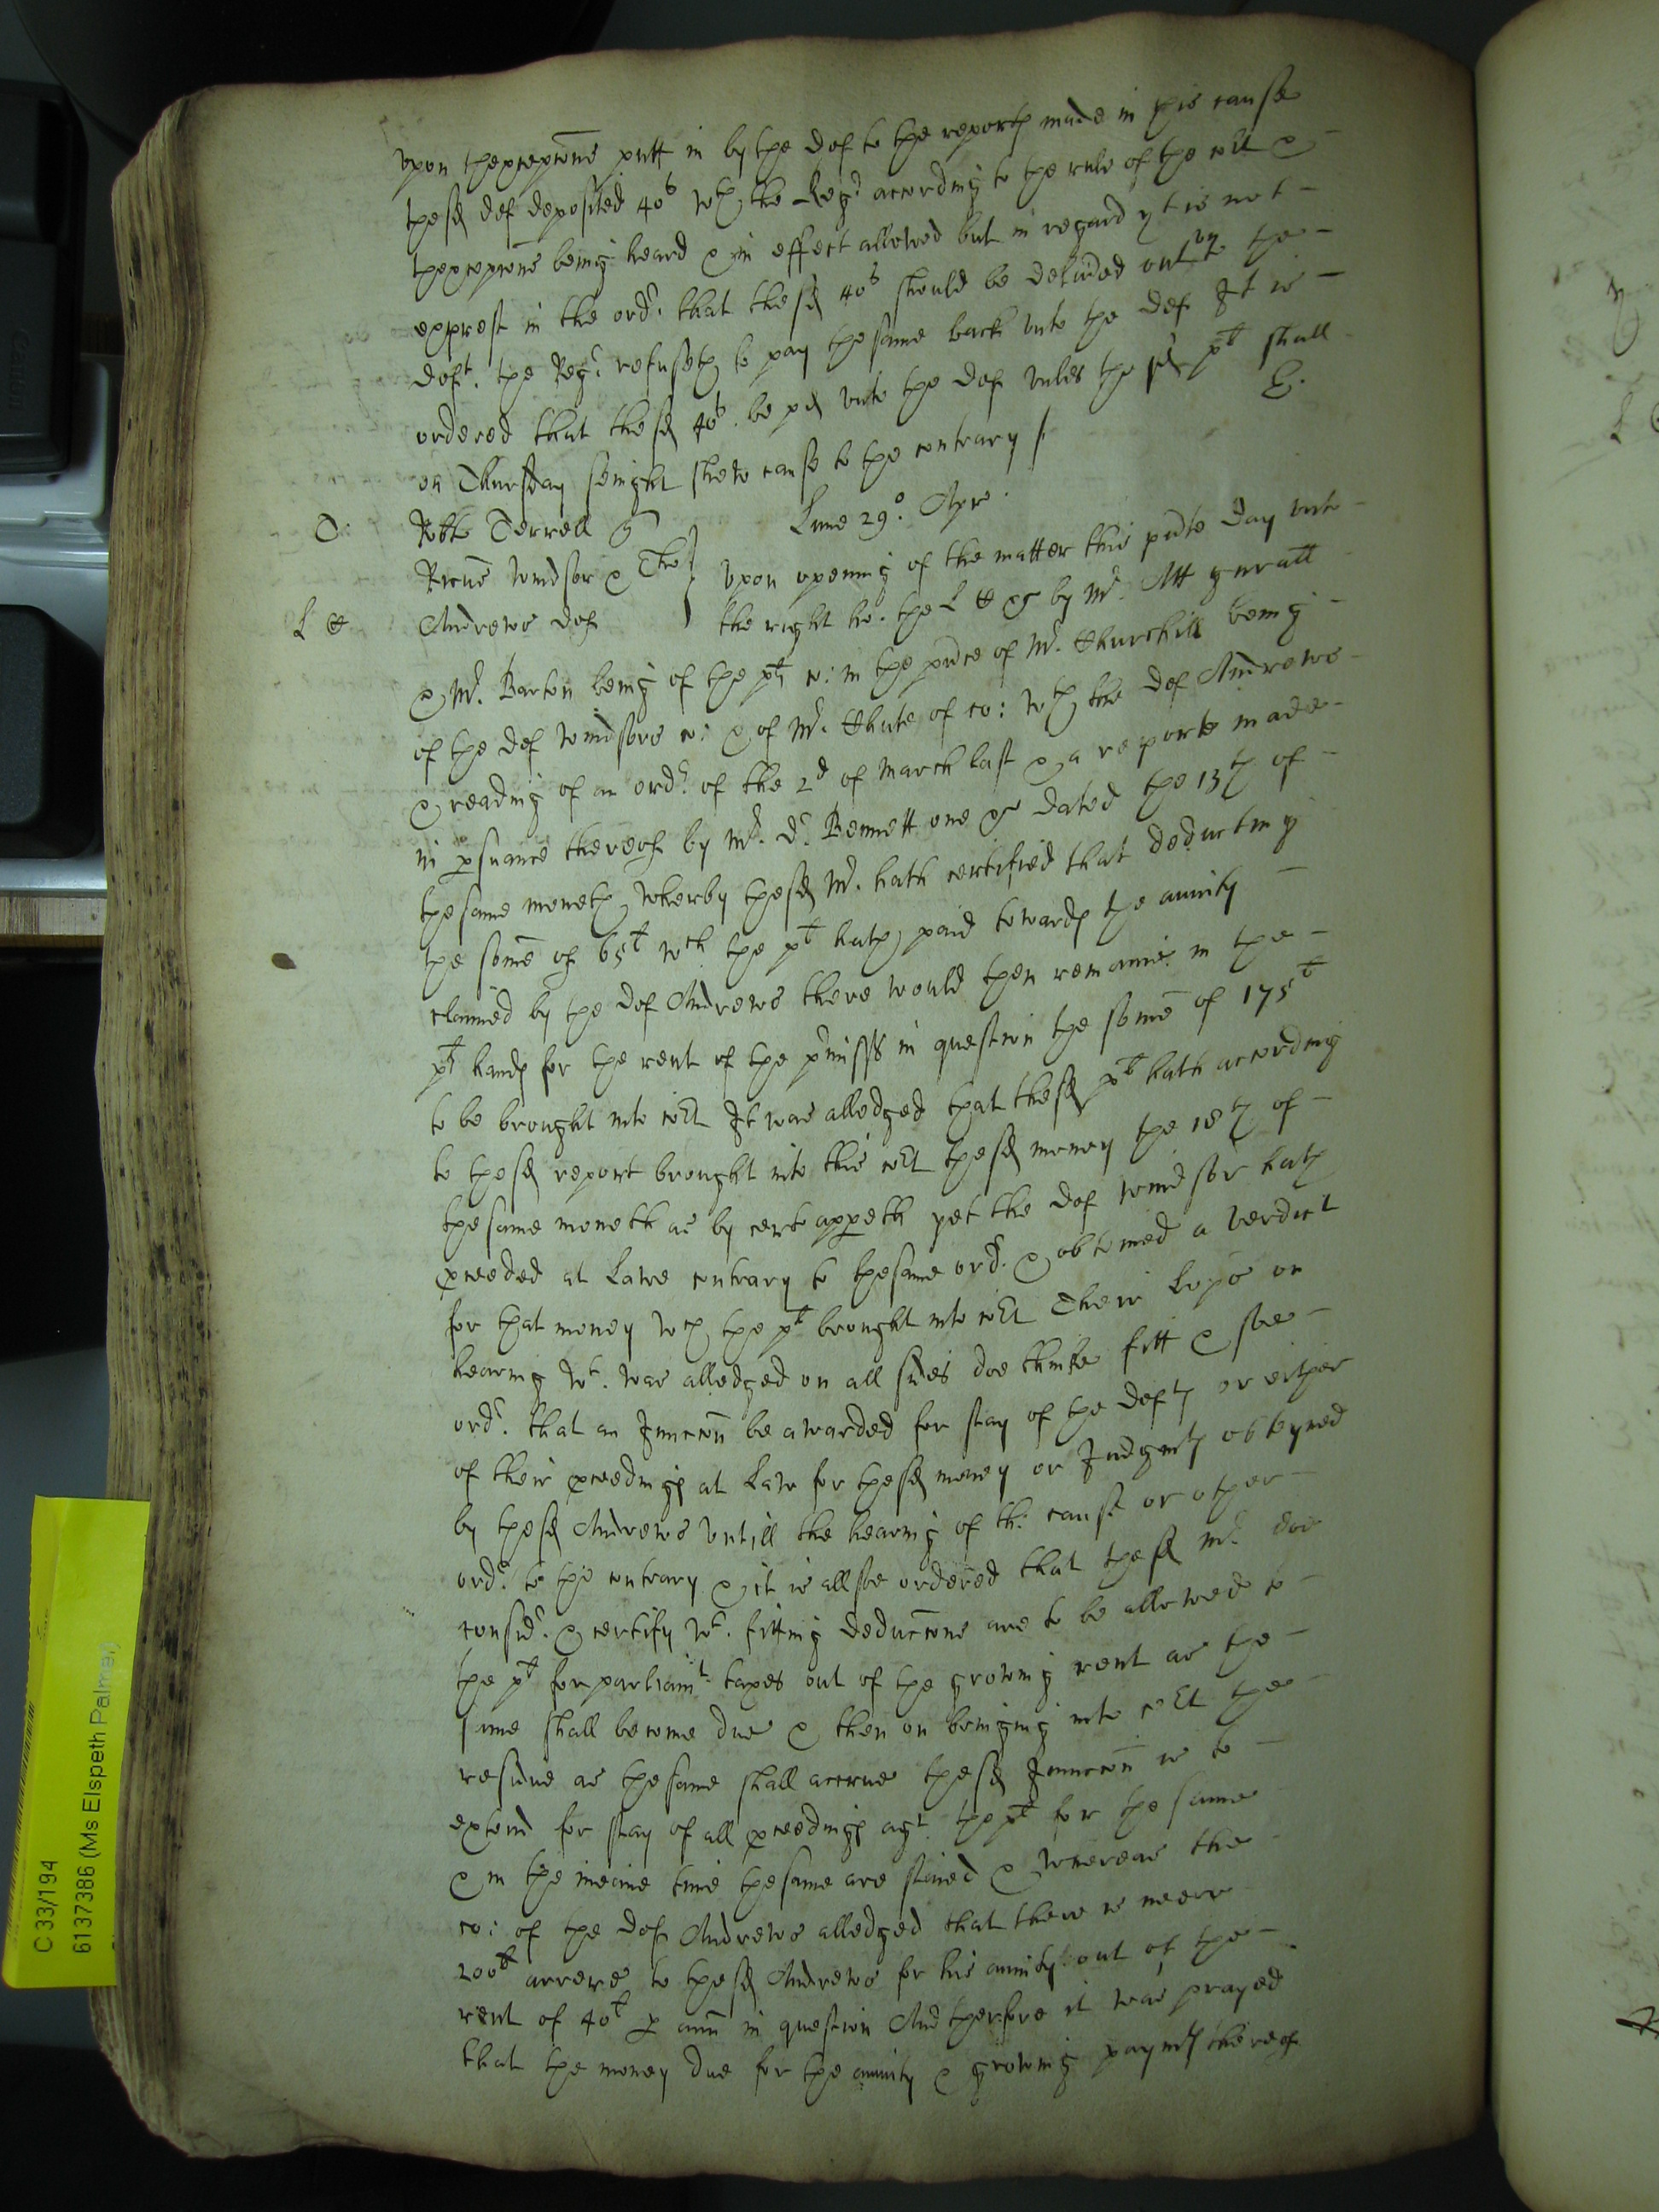 Vpon thexcepcons putt in by the def to the report made in this cause
the sd def deposited 40s wth the Regr according to the rule of the cot &
thexcepcons being heard & in effect allowed but in regard yt is not
exprest in the ordr. that the sd 40s should be deliuered out vnto the
deft. the Regr. refuseth to pay the same back vnto the def It is
ordered that the sd 40s. be pd vnto the def vnles the sd plt shall
on Thursday senight shew cause to the contrary /. E.
Lune 29o. Apr.
T: Robte Terrell
Windsor & Tho} Vpon opening of the matter this pnte day vnto
L C Andrews def } the right ho. the L C by Mr. Att gnrall
& Mr. Barton being of the plts co: in the pnce of Mr. Churchill being
of the def Windsors co: & of Mr. Chute of co: wth the def Andrews
& reading of an ordr. of the 2d of March last & a reporte made
in psuance thereof by Mr. Dr. Bennett one &c dated the 13th of
the same moneth wherby the sd Mr. hath certified that deducting
the some of 65l wch the plt hath paid towards the anuity
claimed by the def Andrews there would then remaine in the
plts hands for the rent of the pmisses in question the some of 175l
to be brought into cot It was alledged that the sd plt hath according
to the sd report brought into this cot the sd money the 18th of
the same moneth as by certe appeth yet the def Windsor hath
pceeded at Lawe contrary to the same ordr. & obteined a verdict
for that money wch the plt brought into cot Their Lopps on
hearing wt. was alledged on all sides doe thinke fitt & soe
ordr. that an Iniunccon be awarded for stay of the defts or either
of their pceedings at Law for the sd money or Iudgmts obteyned
by the sd Andrews vntill the hearing of the cause or other
ordr. to the contrary & it is allsoe ordered that the sd Mr. doe
considr. & certify wt. fitting deduccons are to be allowed to
the plt for parliamt. taxes out of the growing rent as the
same shall become due & then on bringing into cot the
residue as the same shall accrue the sd Iniunccon is to
extend for stay of all pceedings agt. the plt for the same
& in the meane time the same are staied & Whereas the
co: of the def Andrews alledged that there is neere
200l arrere to the sd Andrews for his anuity out of the
rent of 40l p ann in question And therfore it was prayed
that the money due for the anuity & growing paymts thereof
C 33/194
6137386 (Ms Elspeth Palmer)
Canon